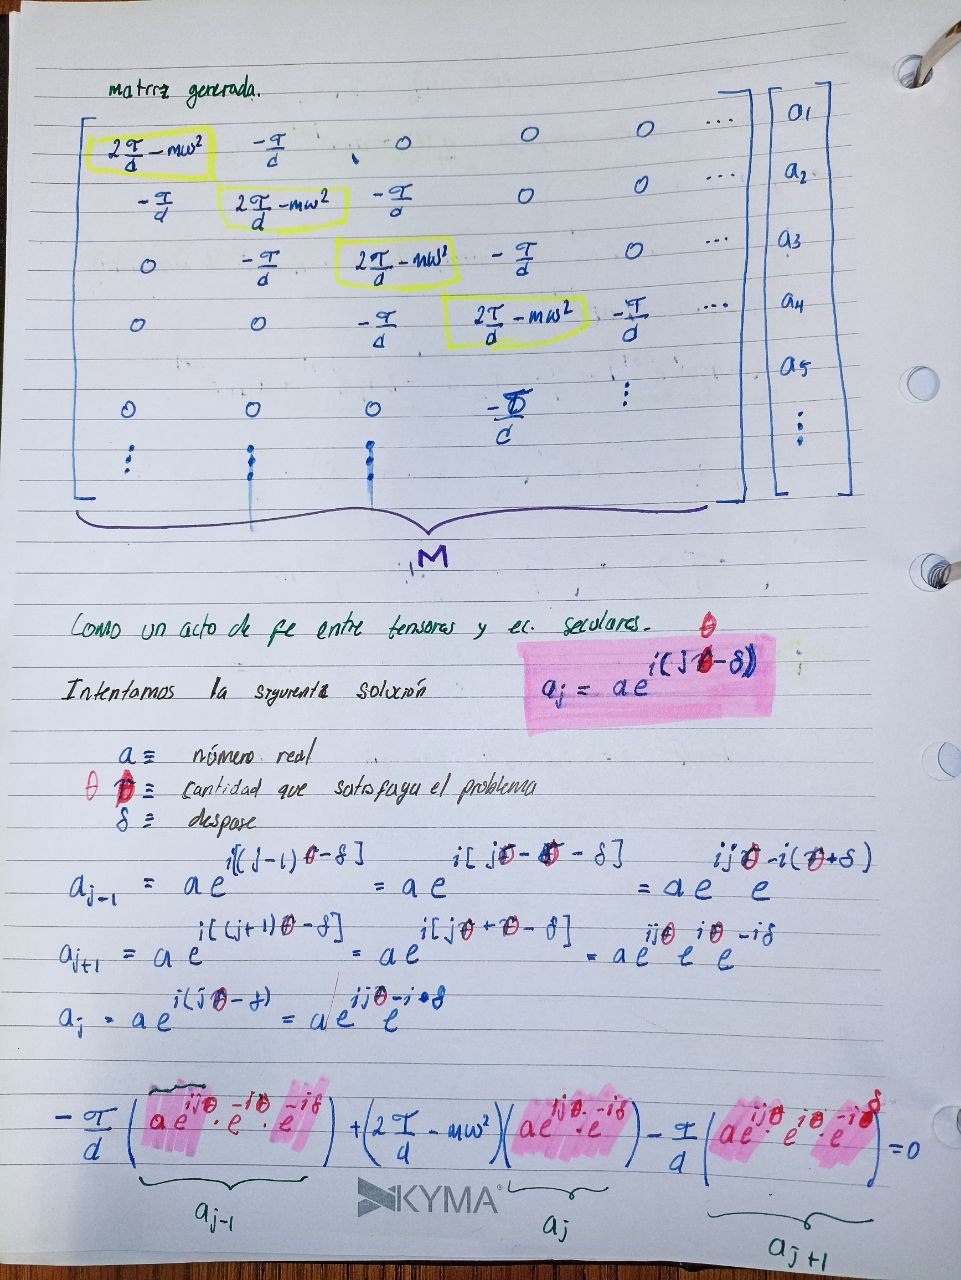 matriz generada.
2τ/d - mω² -τ/d 0 0 0 ... a1
-τ/d 2τ/d - mω² -τ/d 0 0 ... a2
0 -τ/d 2τ/d - mω² -τ/d 0 ... a3
0 0 -τ/d 2τ/d - mω² -τ/d ... a4
a5
0 0 0 -τ/d ⋮
⋮ ⋮ ⋮ ⋮
M
Como un acto de fe entre tensores y ec. seculares.
θ
Intentamos la siguiente solución a_j = a e^{i(jθ-δ)}
a ≡ número real
θ θ ≡ cantidad que satisfaga el problema
δ ≡ despase
a_{j-1} = a e^{i[(j-1)θ-δ]} = a e^{i[jθ-θ-δ]} = a e^{ijθ} e^{-i(θ+δ)}
a_{j+1} = a e^{i[(j+1)θ-δ]} = a e^{i[jθ+θ-δ]} = a e^{ijθ} e^{iθ} e^{-iδ}
a_j = a e^{i(jθ-δ)} = a e^{ijθ} e^{-i·δ}
-τ/d (a e^{ijθ} · e^{-iθ} · e^{-iδ}) + (2τ/d - mω²)(a e^{ijθ} · e^{-iδ}) - τ/d (a e^{ijθ} · e^{iθ} · e^{-iδ}) = 0
a_{j-1} a_j a_{j+1}
KYMA®